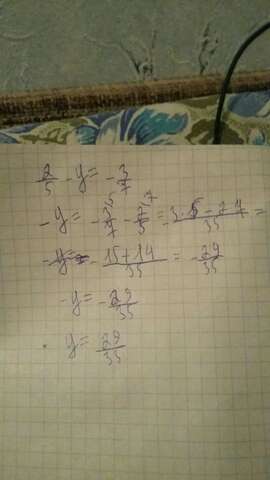 2/5 - y = -3/7
-y = -3/7 ⁵ - 2/5 ⁷ = -3·5 - 2·7/35 =
= -15+14/35 = -29/35
-y = -29/35
y = 29/35